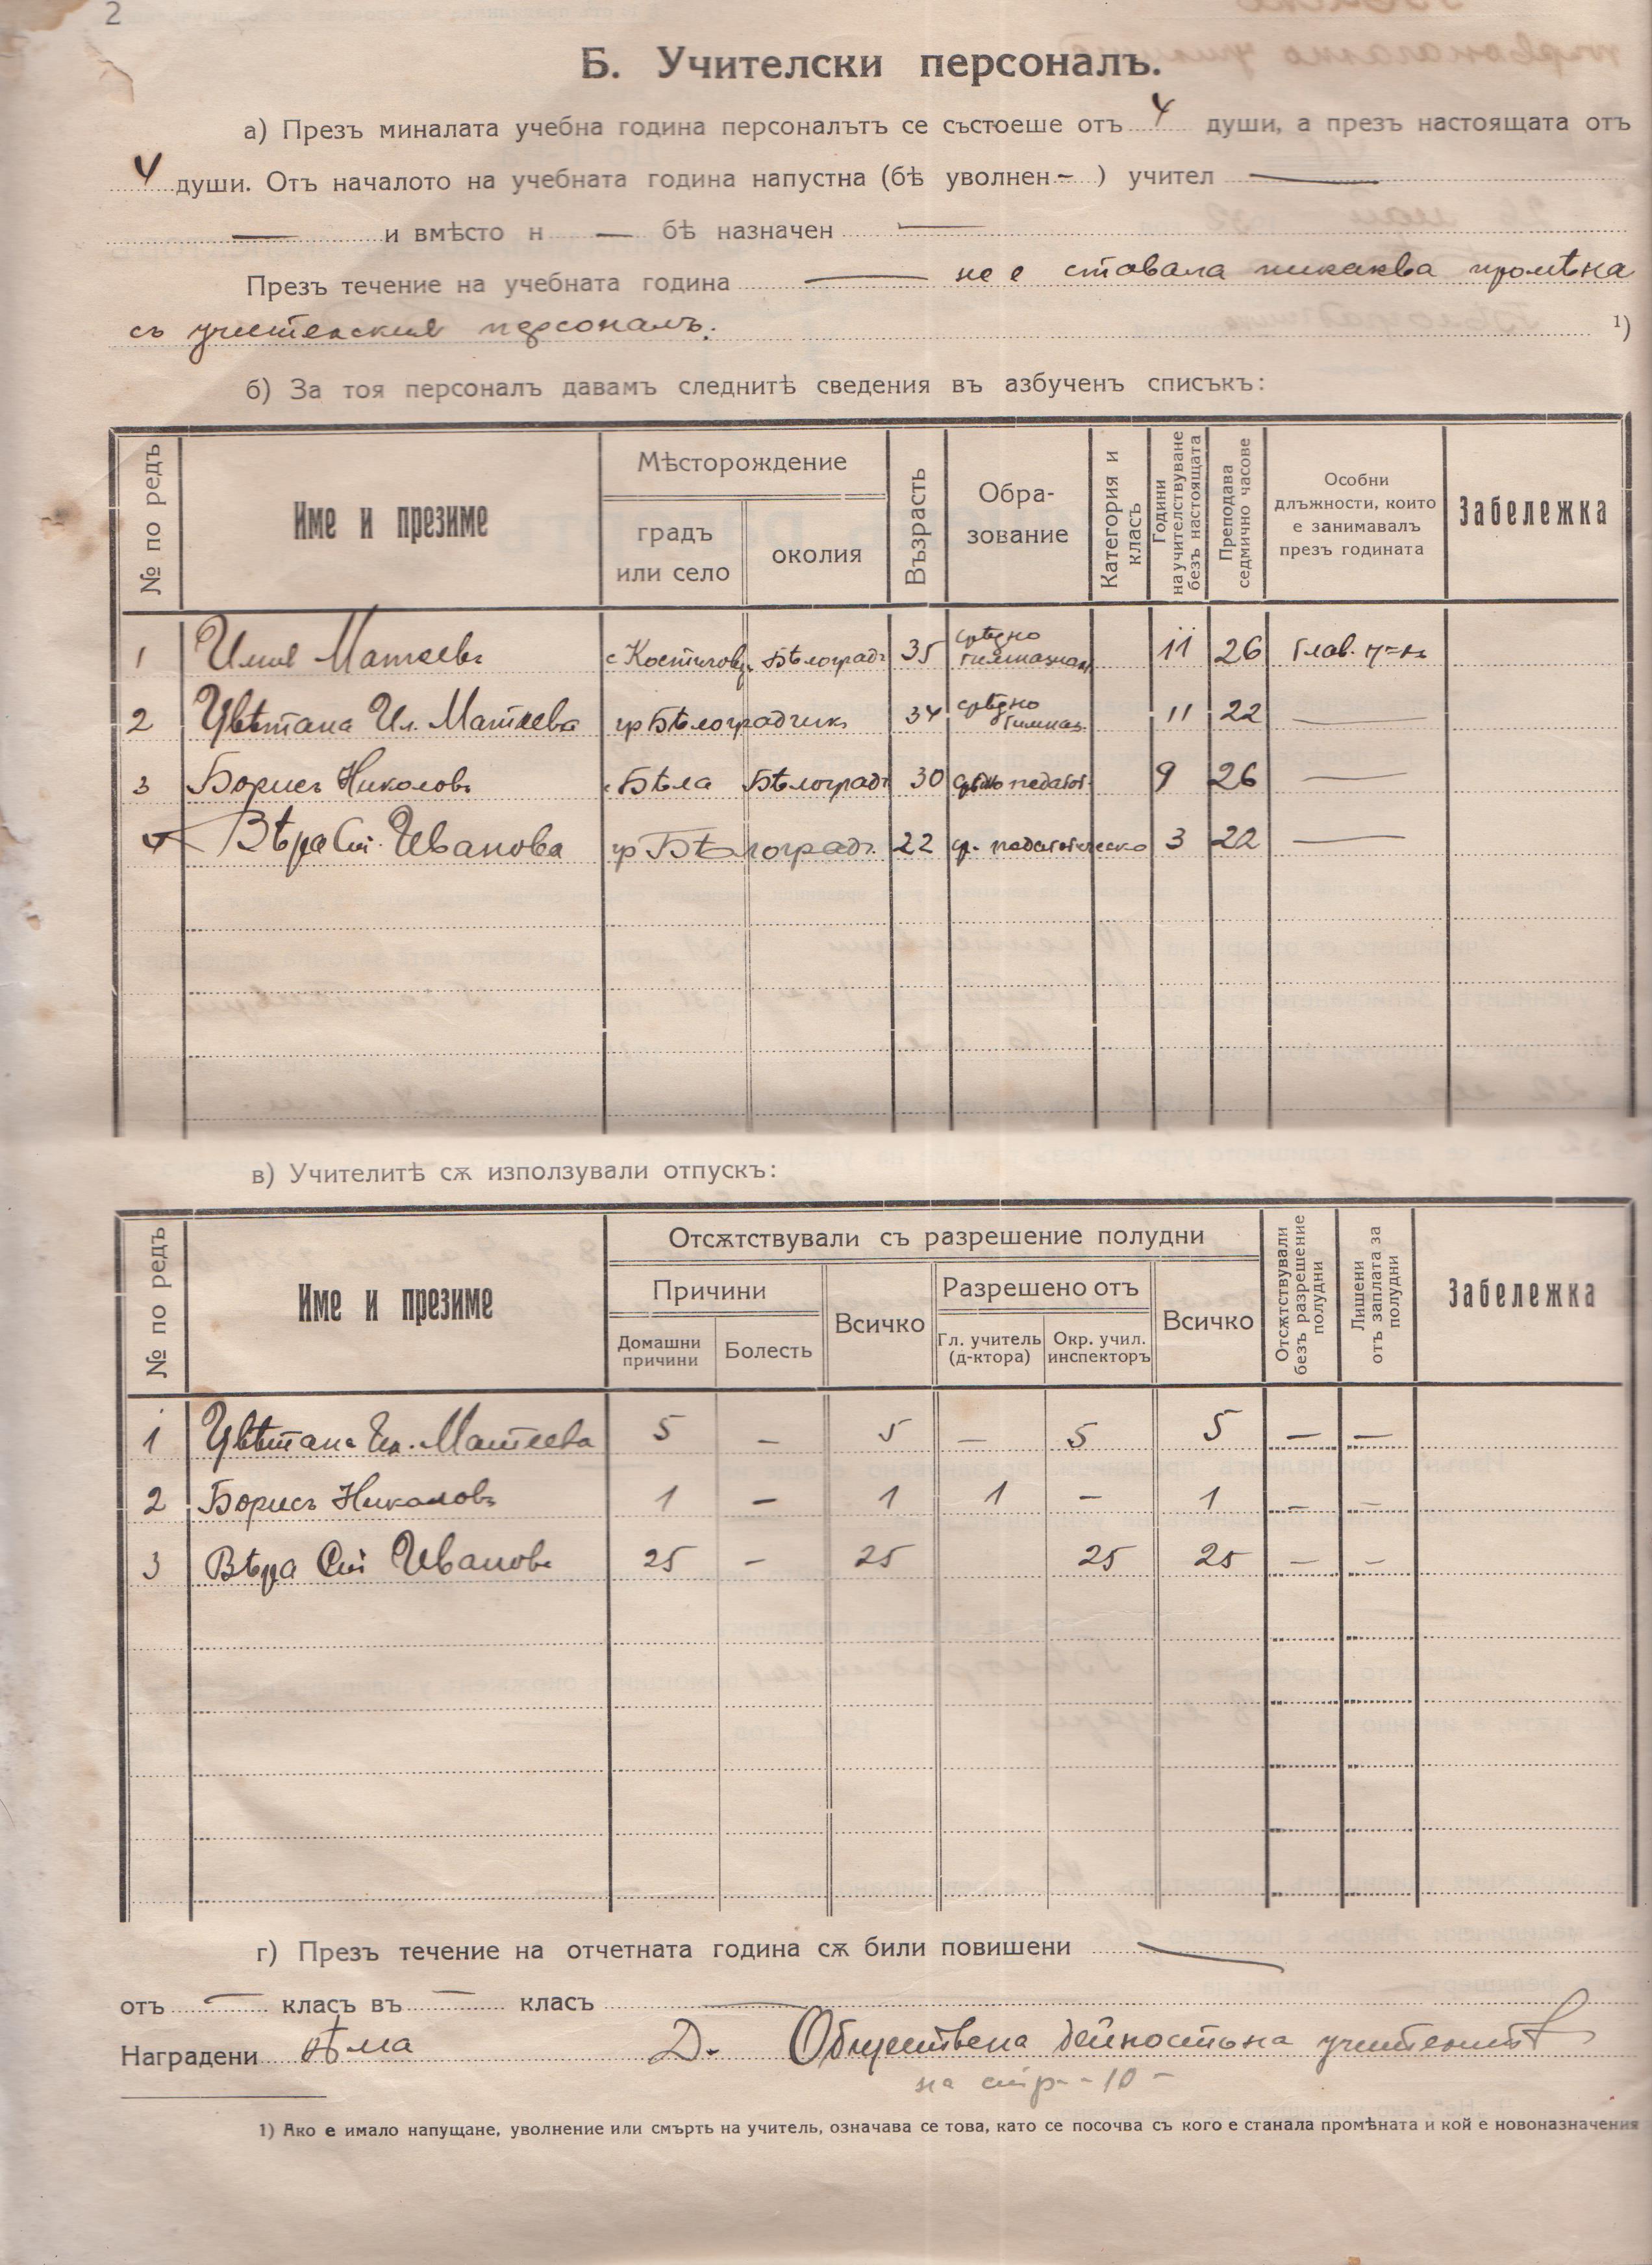 2
Б. Учителски персоналъ.
а) Презъ миналата учебна година персоналътъ се състоеше отъ 4 души, а презъ настоящата отъ
4 души. Отъ началото на учебната година напустна (бѣ уволнен - ) учител —
— и вмѣсто н — бѣ назначен —
Презъ течение на учебната година — не е ставала никаква промѣна
съ учителския персоналъ. 1)
б) За тоя персоналъ давамъ следнитѣ сведения въ азбученъ списъкъ:
№ по редъ Име и презиме Мѣсторождение градъ или село околия Възрасть Обра-зование Категория и класъ Години на учителствуване безъ настоящата Преподава седмично часове Особни длъжности, които е занимавалъ презъ годината Забележка
1 Илия Матеевъ с Костичовц. Бѣлоградч 35 срѣдно гимназиал 11 26 Глав. у-лъ
2 Цвѣтана Ил. Матеева гр Бѣлоградчикъ 34 срѣдно гимназ. 11 22 —
3 Борисъ Николовъ с Бѣла Бѣлоградч 30 срѣдно педагог. 9 26 —
4 Вѣра Сп. Иванова гр Бѣлоградч. 22 ср. педагогическо 3 22 —
в) Учителитѣ сѫ използували отпускъ:
№ по редъ Име и презиме Отсѫтствували съ разрешение полудни Причини Домашни причини Болесть Всичко Разрешено отъ Гл. учитель (д-ктора) Окр. учил. инспекторъ Всичко Отсѫтствували безъ разрешение полудни Лишени отъ заплата за полудни Забележка
1 Цвѣтана Ил. Матеева 5 — 5 — 5 5 — —
2 Борисъ Николовъ 1 — 1 1 — 1 — —
3 Вѣра Сп Иванова 25 — 25 25 25 — —
г) Презъ течение на отчетната година сѫ били повишени —
отъ — класъ въ — класъ —
Наградени нѣма Д. Обществена дейность на учителитѣ
на стр. - 10 -
1) Ако е имало напущане, уволнение или смърть на учитель, означава се това, като се посочва съ кого е станала промѣната и кой е новоназначения